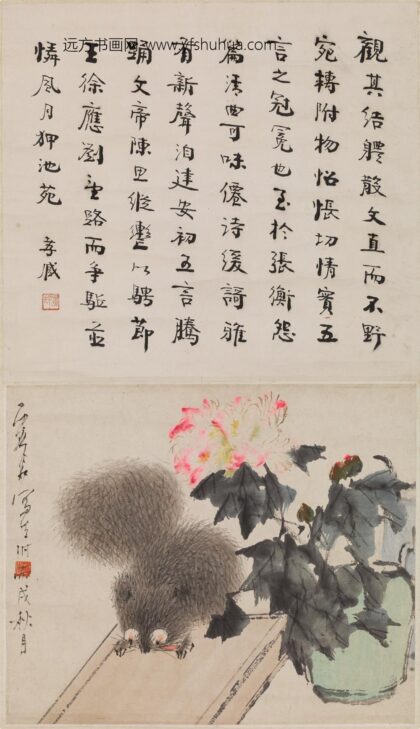 远方书画网 www.yfshuhua.com
觀其結體散文直而不野
宛轉附物怊悵切情實五
言之冠冕也至於張衡怨
篇清曲可味僊詩緩謌雅
有新聲洎建安初五言騰
踊文帝陳思縱轡以騁節
王徐應劉望路而爭驅並
憐風月狎池苑 孝臧
寫生
戌秋月